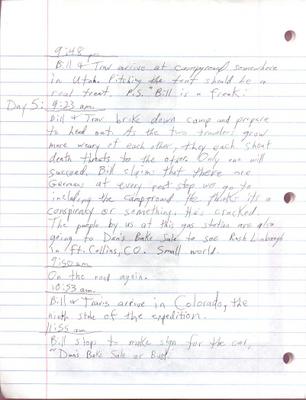 9:48 pm
Bill & Trav arrive at campground somewhere
in Utah. Pitching the tent should be a
real treat. P.S. "Bill is a freak!
Day 5: 9:23 am
Bill & Trav broke down camp and prepare
to head out. As the two travelers grow
more weary of each other, they each shout
death threats to the other. Only one will
succeed. Bill claims that there are
Germans at every rest stop we go to
including the campground. He thinks its a
conspiracy or something. He's cracked.
The people by us at this gas station are also
going to Dan's Bake Sale to see Rush Limbaugh
in Ft. Collins, CO. Small world.
9:50 am
On the road again.
10:53 am
Bill & Travis arrive in Colorado, the
ninth state of the expedition.
11:55 am
Bill stops to make sign for the car,
"Dan's Bake Sale or Bust.